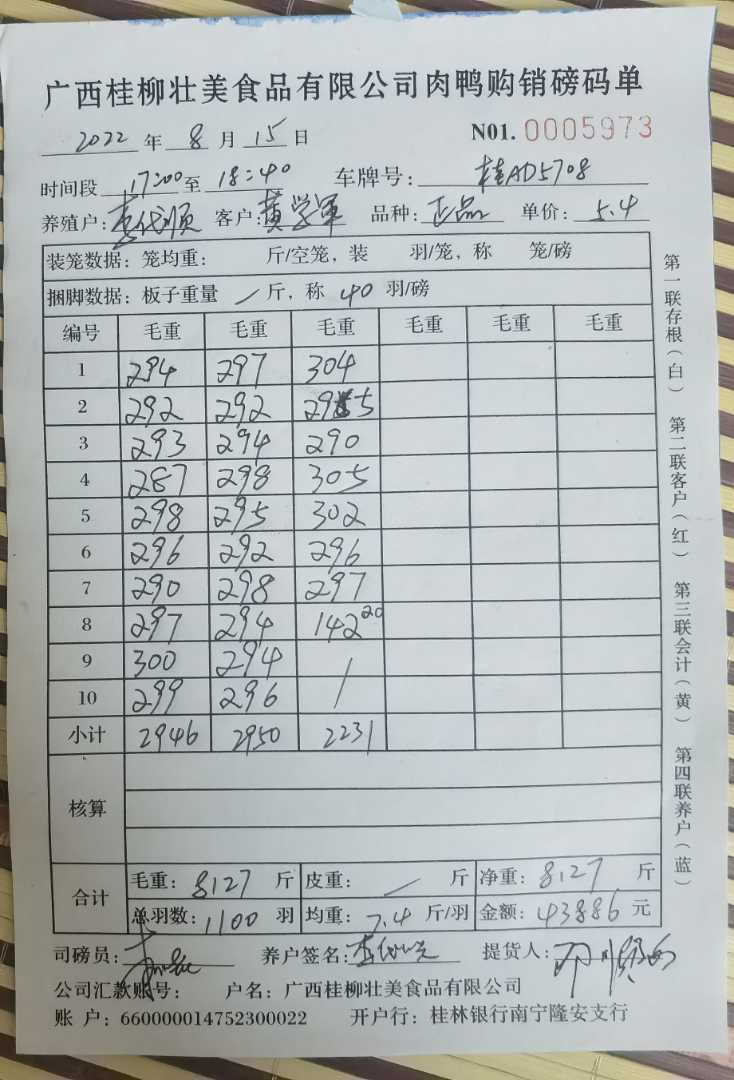 广西桂柳壮美食品有限公司肉鸭购销磅码单
2022 年 8 月 15 日 N01. 0005973
时间段 17:00 至 18:40 车牌号: 桂AD5708
养殖户: 客户: 黄学军 品种: 正品 单价: 5.4
装笼数据: 笼均重: 斤/空笼, 装 羽/笼, 称 笼/磅
捆脚数据: 板子重量 / 斤, 称 40 羽/磅
编号 毛重 毛重 毛重 毛重 毛重 毛重
1 294 297 304
2 292 292 295
3 293 294 290
4 287 298 305
5 298 295 302
6 296 292 296
7 290 298 297
8 297 294 142 20
9 300 294 /
10 299 296
小计 2946 2950 2231
核算
合计 毛重: 8127 斤 皮重: / 斤 净重: 8127 斤
总羽数: 1100 羽 均重: 7.4 斤/羽 金额: 43886 元
司磅员: 养户签名: 提货人:
公司汇款账号: 户名: 广西桂柳壮美食品有限公司
账 户: 660000014752300022 开户行: 桂林银行南宁隆安支行
第一联存根(白) 第二联客户(红) 第三联会计(黄) 第四联养户(蓝)